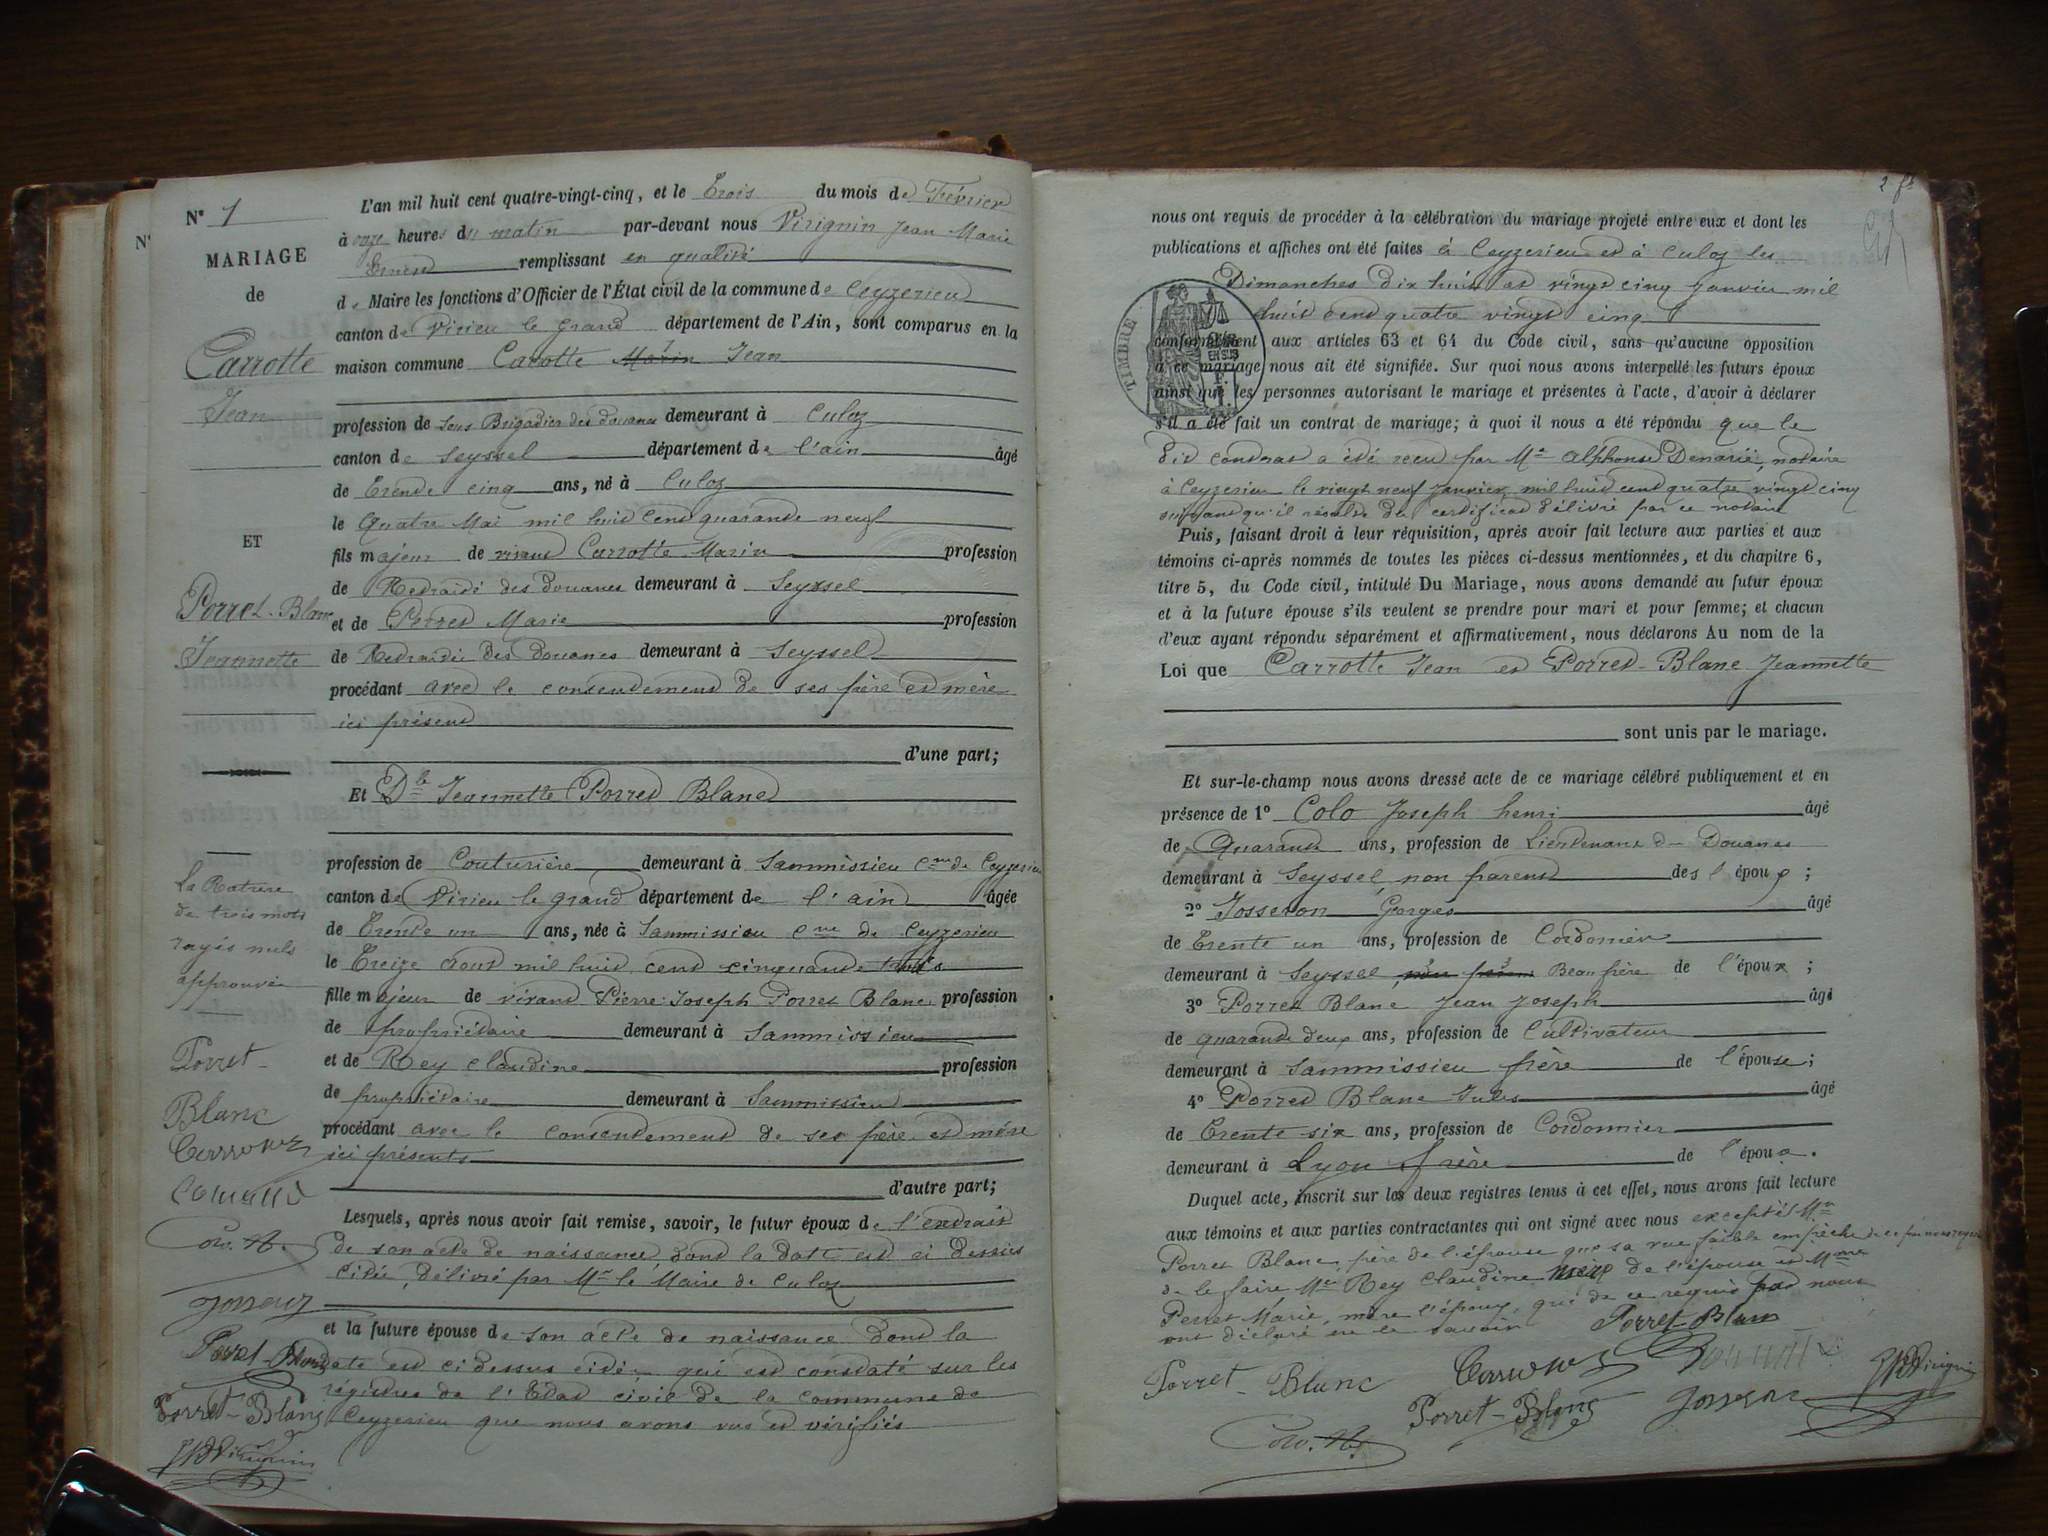 N° 1
MARIAGE
de
Carrotte
Jean
ET
Porret-Blanc
Jeannette
La Rature
de trois mots
rayés nuls
approuvée
Porret-
Blanc
Josseron
Porret-Blanc
Porret-Blanc
L'an mil huit cent quatre-vingt-cinq, et le Trois du mois de Février
à onze heures du matin par-devant nous Virignin Jean Marie
remplissant en qualité
de Maire les fonctions d'Officier de l'État civil de la commune de Ceyzerieu
canton de Virieu le grand département de l'Ain, sont comparus en la
maison commune Carotte Marin Jean
profession de Sous Brigadier des douanes demeurant à Culoz
canton de Seyssel département de l'ain âgé
de Trente cinq ans, né à Culoz
le Quatre Mai mil huit cent quarante neuf
fils majeur de vivant Carrotte Marin profession
de Retraité des douanes demeurant à Seyssel
et de Perret Marie profession
de Retraitée des Douanes demeurant à Seyssel
procédant avec le consentement de ses père et mère
ici présent
d'une part;
Et Dlle Jeannette Porret Blanc
profession de Couturière demeurant à Sammissieu Cne de Ceyzerieu
canton de Virieu le grand département de l'ain âgée
de Trente un ans, née à Sammissieu Cne de Ceyzerieu
le Treize aout mil huit cent cinquante trois
fille majeur de vivant Pierre Joseph Porret Blanc profession
de propriétaire demeurant à Sammissieu
et de Rey Claudine profession
de propriétaire demeurant à Sammissieu
procédant avec le consentement de ses père et mère
ici présents
d'autre part;
Lesquels, après nous avoir fait remise, savoir, le futur époux de l'extrait
de son acte de naissance, dont la date est ci dessus
citée, délivré par Mr le Maire de Culoz
et la future épouse de son acte de naissance dont la
date est ci dessus citée qui est constaté sur les
régistres de l'Etat civil de la commune de
Ceyzerieu que nous avons vus et vérifiés
2 ft
nous ont requis de procéder à la célébration du mariage projeté entre eux et dont les
publications et affiches ont été faites à Ceyzerieu et à Culoz les
Dimanches dix huit et vingt cinq janvier mil
huit cent quatre vingt cinq
TIMBRE
conformément aux articles 63 et 64 du Code civil, sans qu'aucune opposition
à ce mariage nous ait été signifiée. Sur quoi nous avons interpellé les futurs époux
ainsi que les personnes autorisant le mariage et présentes à l'acte, d'avoir à déclarer
s'il a été fait un contrat de mariage; à quoi il nous a été répondu que le
dit contrat a été reçu par Me Alphonse Denarié, notaire
à Ceyzerieu le vingt neuf janvier mil huit cent quatre vingt cinq
suivant qu'il résulte du certificat délivré par ce notaire
Puis, faisant droit à leur réquisition, après avoir fait lecture aux parties et aux
témoins ci-après nommés de toutes les pièces ci-dessus mentionnées, et du chapitre 6,
titre 5, du Code civil, intitulé Du Mariage, nous avons demandé au futur époux
et à la future épouse s'ils veulent se prendre pour mari et pour femme; et chacun
d'eux ayant répondu séparément et affirmativement, nous déclarons Au nom de la
Loi que Carrotte Jean et Porret-Blanc Jeannette
sont unis par le mariage.
Et sur-le-champ nous avons dressé acte de ce mariage célébré publiquement et en
présence de 1° Colo Joseph henri âgé
de Quarante ans, profession de Lieutenant de Douanes
demeurant à Seyssel, non parent des l'époux;
2° Josseron Georges âgé
de Trente un ans, profession de Cordonnier
demeurant à Seyssel, non parent Beau frère de l'époux;
3° Porret Blanc Jean Joseph âgé
de quarante deux ans, profession de Cultivateur
demeurant à Sammissieu frère de l'épouse;
4° Porret Blanc Jules âgé
de Trente-six ans, profession de Cordonnier
demeurant à Lyon frère de l'épouse.
Duquel acte, inscrit sur les deux registres tenus à cet effet, nous avons fait lecture
aux témoins et aux parties contractantes qui ont signé avec nous excepté Mr
Porret Blanc, père de l'épouse que sa vue faible empêche
de le faire, Me Rey Claudine mère de l'épouse et Mme
Perret Marie, mère l'époux, qui de ce requis par nous
ont déclaré ne le savoir
Porret-Blanc
Porret-Blanc
Porret-Blanc
Josseron